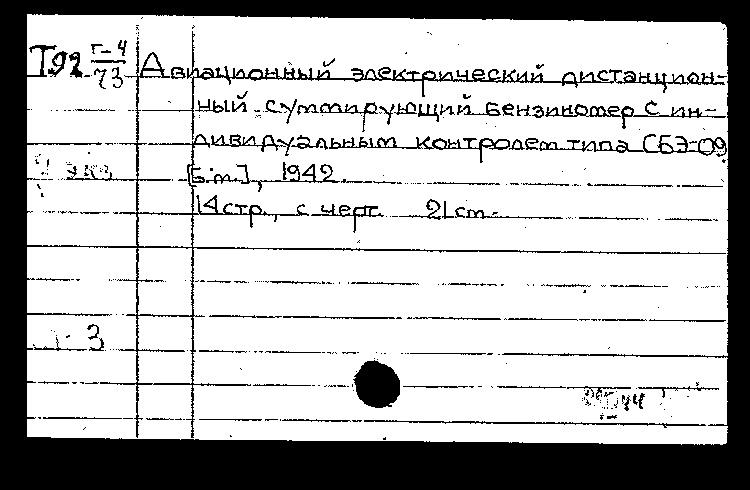 Т.92 Г-4/73 Авиационный электрический дистанцион-
ный суммирующий бензиномер с ин-
дивидуальным контролем типа СБЭ-09
[б.м.], 1942.
экз
14 стр., с черт. 21 cm.
3
44